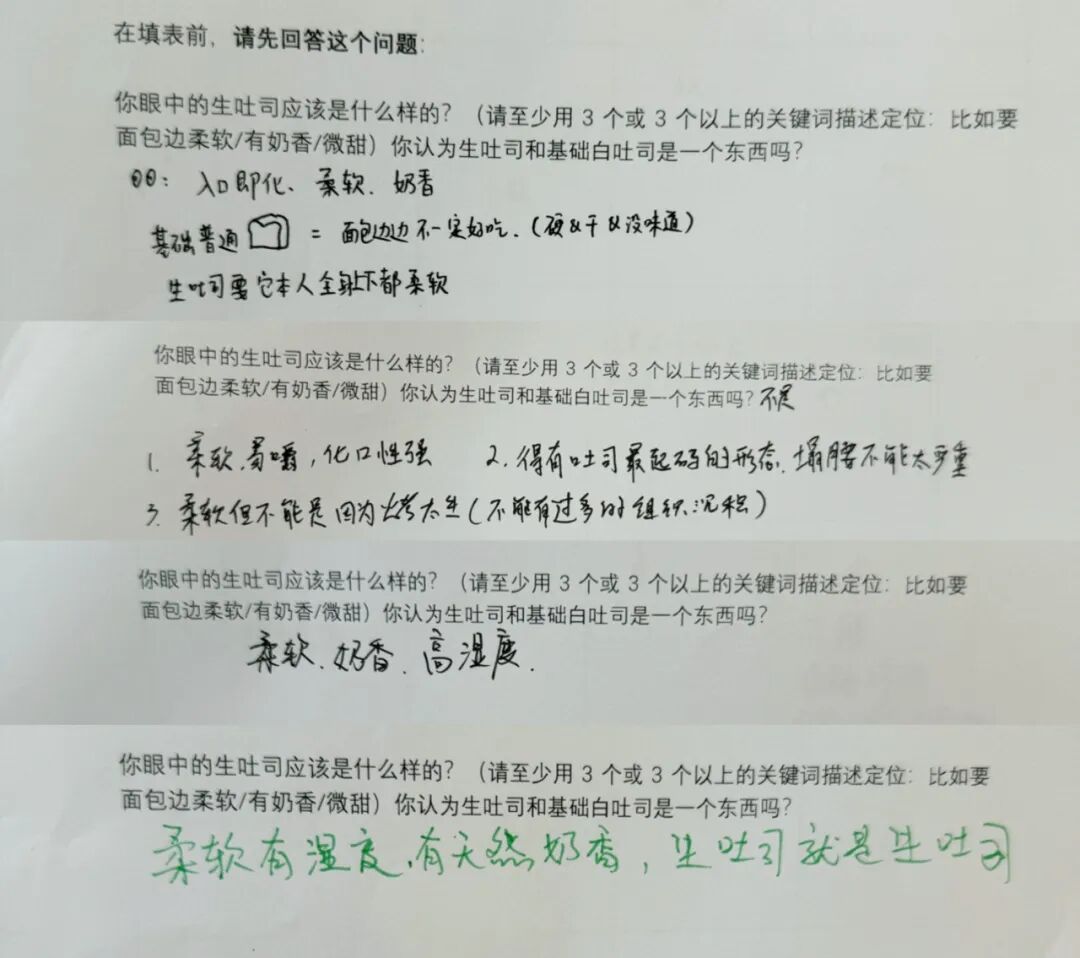 在填表前，请先回答这个问题：
你眼中的生吐司应该是什么样的？（请至少用 3 个或 3 个以上的关键词描述定位：比如要
面包边柔软/有奶香/微甜）你认为生吐司和基础白吐司是一个东西吗？
入口即化、柔软、奶香
基础普通 = 面包边边不一定好吃.（硬&干&没味道）
生吐司要它本人全身上下都柔软
你眼中的生吐司应该是什么样的？（请至少用 3 个或 3 个以上的关键词描述定位：比如要
面包边柔软/有奶香/微甜）你认为生吐司和基础白吐司是一个东西吗？不是
1. 柔软,易嚼，化口性强 2. 得有吐司最起码的形态、塌腰不能太严重
3. 柔软但不能是因为烤太生（不能有过多的组织沉积）
你眼中的生吐司应该是什么样的？（请至少用 3 个或 3 个以上的关键词描述定位：比如要
面包边柔软/有奶香/微甜）你认为生吐司和基础白吐司是一个东西吗？
柔软、奶香、高湿度.
你眼中的生吐司应该是什么样的？（请至少用 3 个或 3 个以上的关键词描述定位：比如要
面包边柔软/有奶香/微甜）你认为生吐司和基础白吐司是一个东西吗？
柔软有湿度、有天然奶香，生吐司就是生吐司